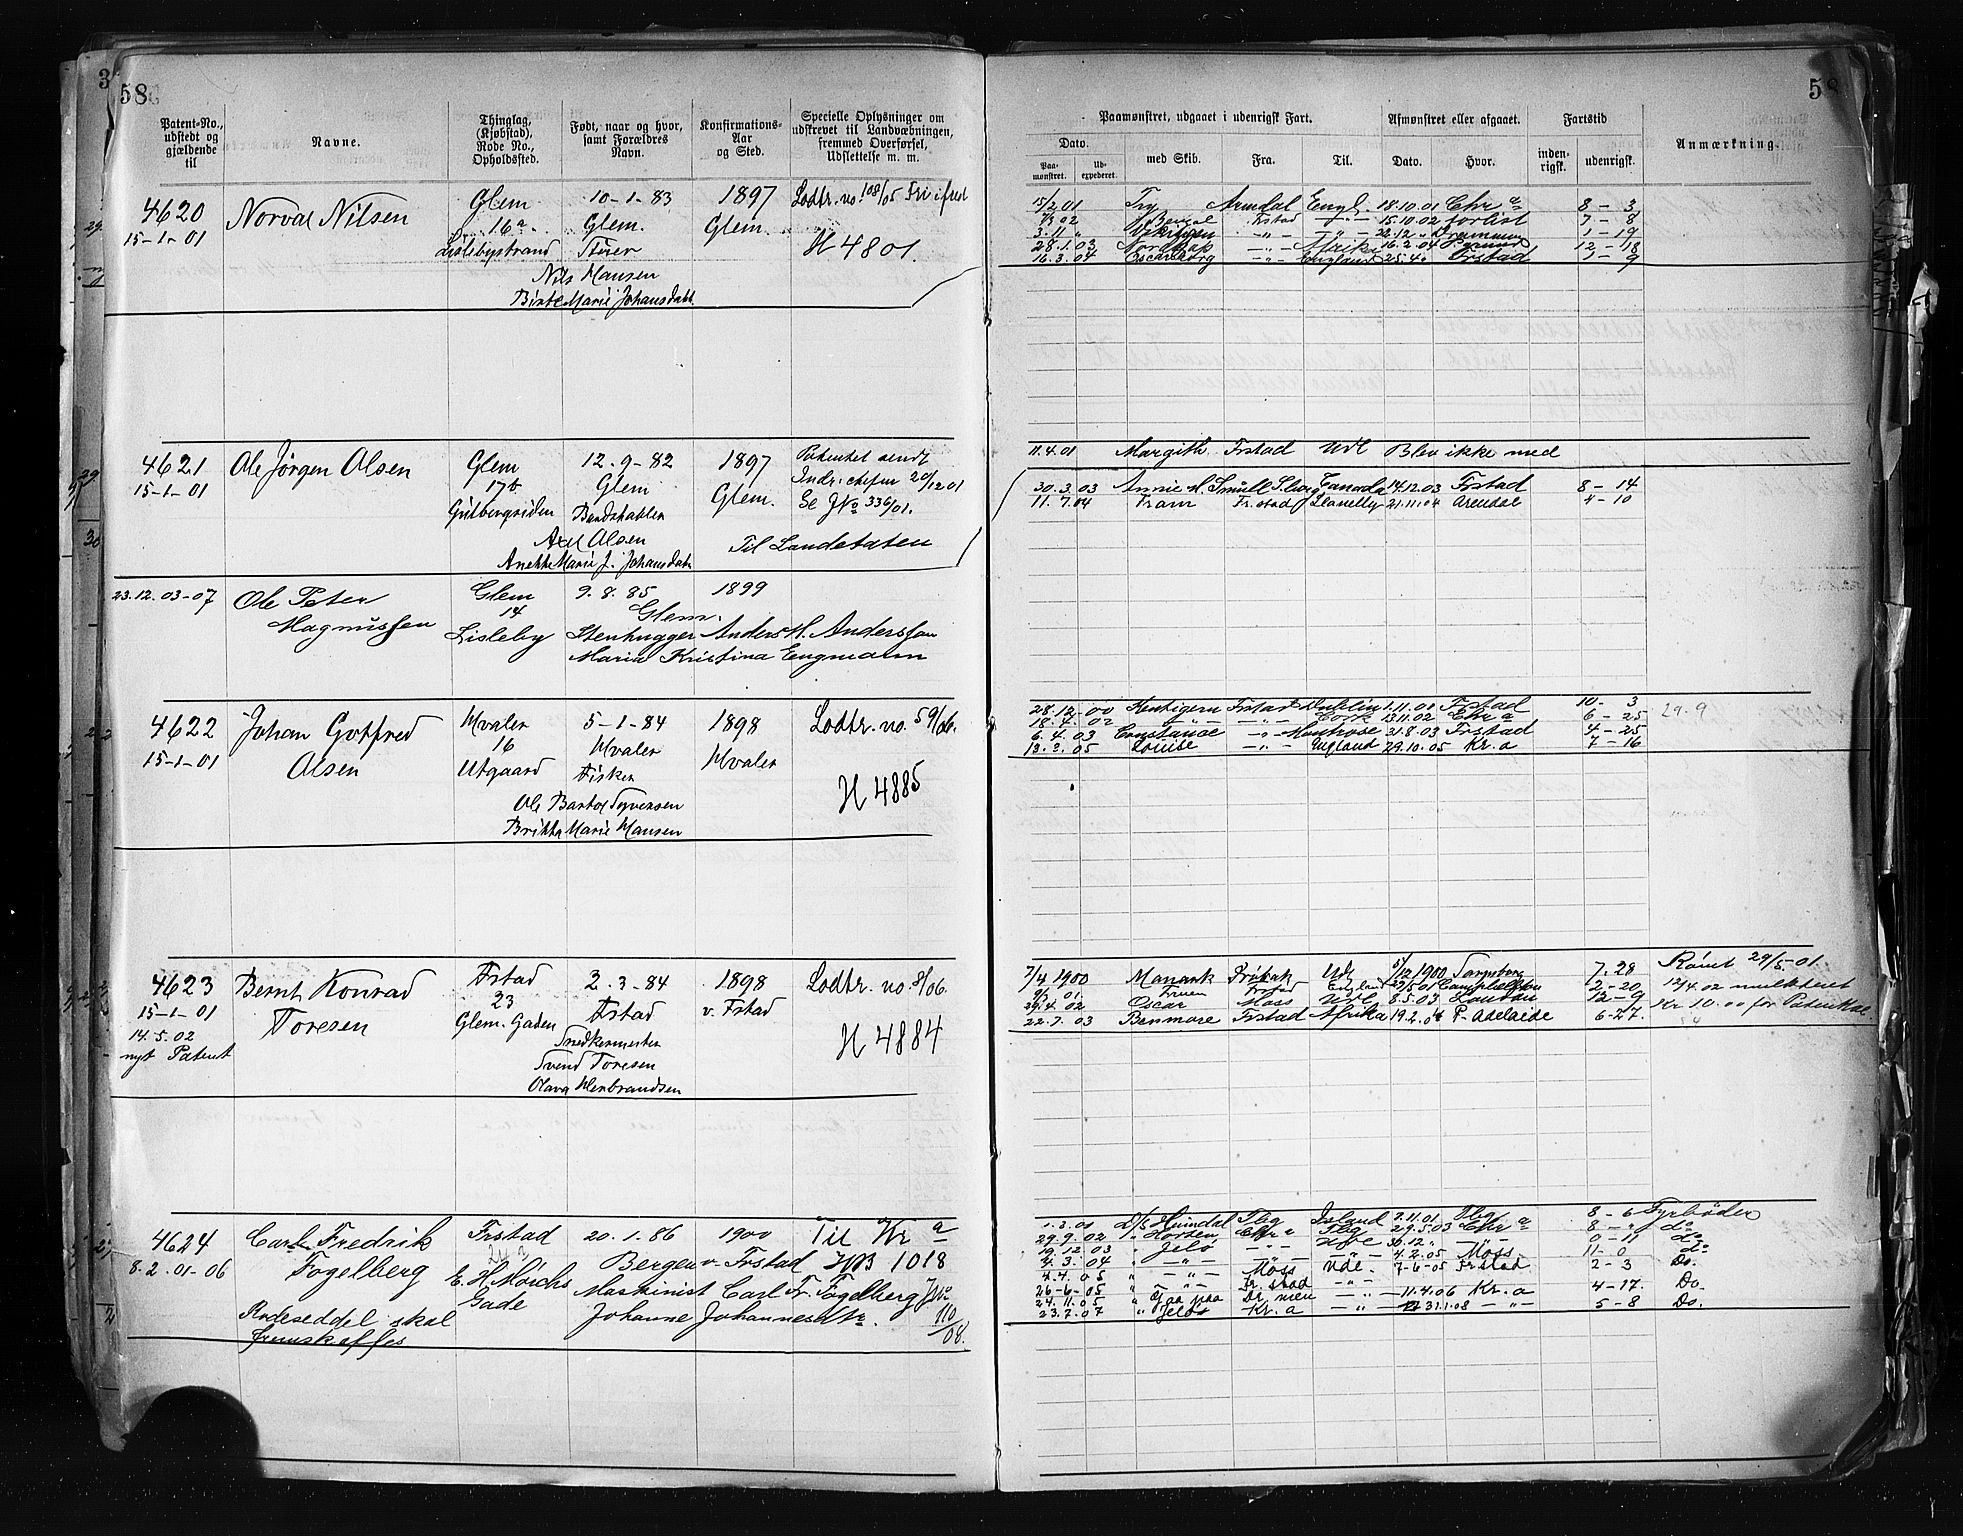 58
Patent-No., udstedt og gjældende til
Navne.
Thinglag, (Kjøbstad), Rode No., Opholdssted.
Født, naar og hvor, samt Forældres Navn.
Konfirmations-Aar og Sted.
Specielle Oplysninger om udskrevet til Landværbningen, fremmed Overførsel, Udslettelse m. m.
4620 Norval Nilsen Glem 10-1-83 1897 Lodtr. no. 108/05
15-1-01 16a Glem. Glem. H 4801.
Lislebystrand
Nils Hansen
Birte Marie Johansdatt.
4621 Ole Jørgen Olsen Glem 12-9-82 1897 Patentet sendt
15-1-01 17b Glem Glem. Indr. chefen 20/12 01
Se JNo 336/01.
Axel Olsen Til Landetaten
Anette Marie J. Johansdatr
23.12.03-07 Ole Peter Glem 9.8.85 1899
Magnussen 14 Glem.
Lisleby Stenhugger Anders M. Anderssen
Maria Kristina Engmann
4622 Johan Gotfred Hvaler 5-1-84 1898 Lodtr. no. 59/06.
15-1-01 Olsen 16 Hvaler Hvaler
Utgaard Fisker H 4885
Ole Bastol Syversen
Britha Marie Hansen
4623 Bernt Konrad Fstad 2-3-84 1898 Lodtr. no. 8/06.
15-1-01 Toresen 23 Fstad v. Fstad
14.5.02 Glem. Gaden Snedkermester H 4884
nyt Patent Svend Toresen
Olava Henbrandsen
4624 Carl Fredrik Frstad 20-1-86 1900 Til Kra
8-2.01-06 Fogelberg Bergen v. Frstad HB 1018
E. H. Mørchs Maskinist Carl Fr. Fogelberg
Gade Johanne Johannesdtr. 110/08.
Rodeseddel skal
fremskaffes
58
Paamønstret, udgaaet i udenrigsk Fart.
Afmønstret eller afgaaet.
Fartstid
Anmærkning.
Dato.
Paa-mønstret.
Ud-expederet.
med Skib.
Fra.
Til.
Dato.
Hvor.
inden-rigsk.
udenrigsk.
15/2 01 Try Arendal Engl. 18.10.01 Chr a 8-3
7/3 02 Bengal Frstad -"- 15.10.02 7-8
3.11 " -"- -"- 22.12 " Drammen 1-19
28.1.03 Nordkap -"- Afrika 16.2.04 12-18
16.3.04 Oscarsborg -"- England 25.4 " Frstad 1-9
11.4.01 Margith Frstad Udl Blev ikke med
30.3.03 Annie M. Smull Canada 14.12.03 Fstad 8-14
11.7.04 Fram Fr.stad Llanelly 21.11.04 Arendal 4-10
28.12.00 Kentigern Frstad Dublin 1.11.01 Frstad 10-3 29.9
18.4.02 -"- -"- Cork 13.11.02 Chr a 6-25
6.4.03 Constance -"- Montrose 31.8.03 Frstad 4-25
13.3.05 Louise -"- England 29.10.05 Kr.a 7-16
7/4 1900 Monark Udl 5/12 1900 7.28 Rømt 29/5-01.
9/3 01. Fruen Frstad England 29/5 01 2-20 12/4 02 mulkteret
29.4.02 Oscar Moss Udl 8.5.03 London 12-9 Kr 10.00 for Patentkøb
22.7.03 Benmore Frstad Afrika 19.2.04 P. Adelaide 6-27.
1.3.01 D/S Heimdal Fbg Island 7.11.01 Fbg 8-6 Fyrbøder
29.9.02 " Horten Chr a Fbg 29.5.03 Chr a 8-" do
19.12.03 " Jelø -"- Udl 30.12 " -"- 0-11 do
4.3.04 " -"- -"- -"- 4.2.05 Moss 11-0 do
4.4.05 " -"- Moss Udl. 7-6-05 Frstad 2-3 Do.
26-6-05 " -"- Fr.stad -"-
24.11.05 " Dr.men -"- 11.4.06 Kr.a 4-17. Do.
23.7.07 " Jelø Kr.a -"- 31.1.08 -"- 5-8 Do.